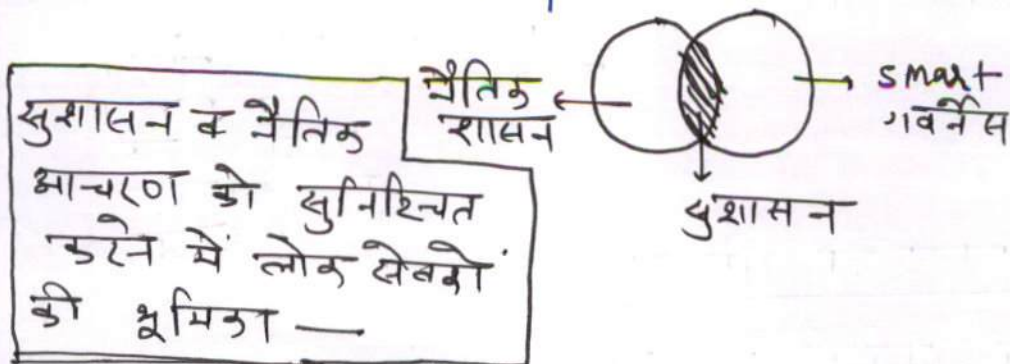 सुशासन व नैतिक
आचरण को सुनिश्चित
करने में लोक सेवकों
की भूमिका —
नैतिक
शासन
smart
गवर्नेंस
सुशासन